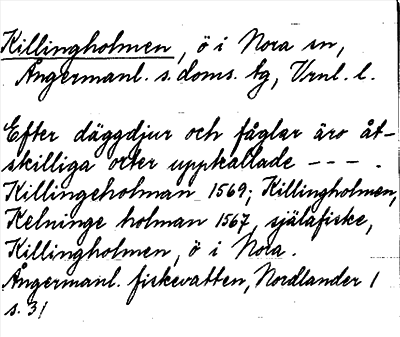 Killingholmen, ö i Nora sn,
Ångermanl. s. doms. tg, Vrnl. l.
Efter däggdjur och fåglar äro åt-
skilliga orter uppkallade --- .
Killingeholman 1569; Killingholmen,
Kelninge holman 1567, själafiske,
Killingholmen, ö i Nora.
Ångermanl. fiskevatten, Nordlander 1
s. 31